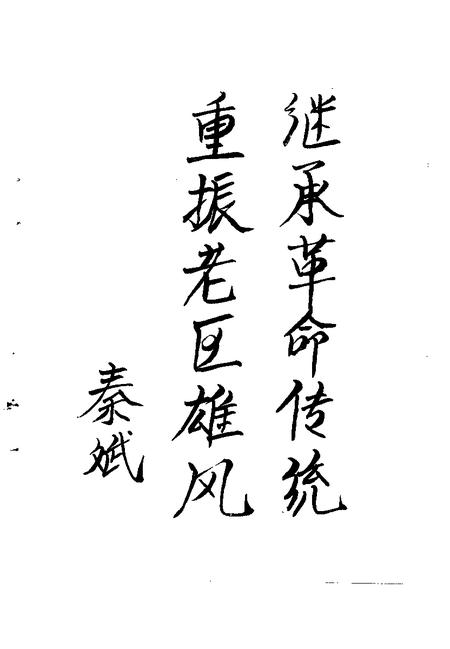 继承革命传统
重振老区雄风
秦斌